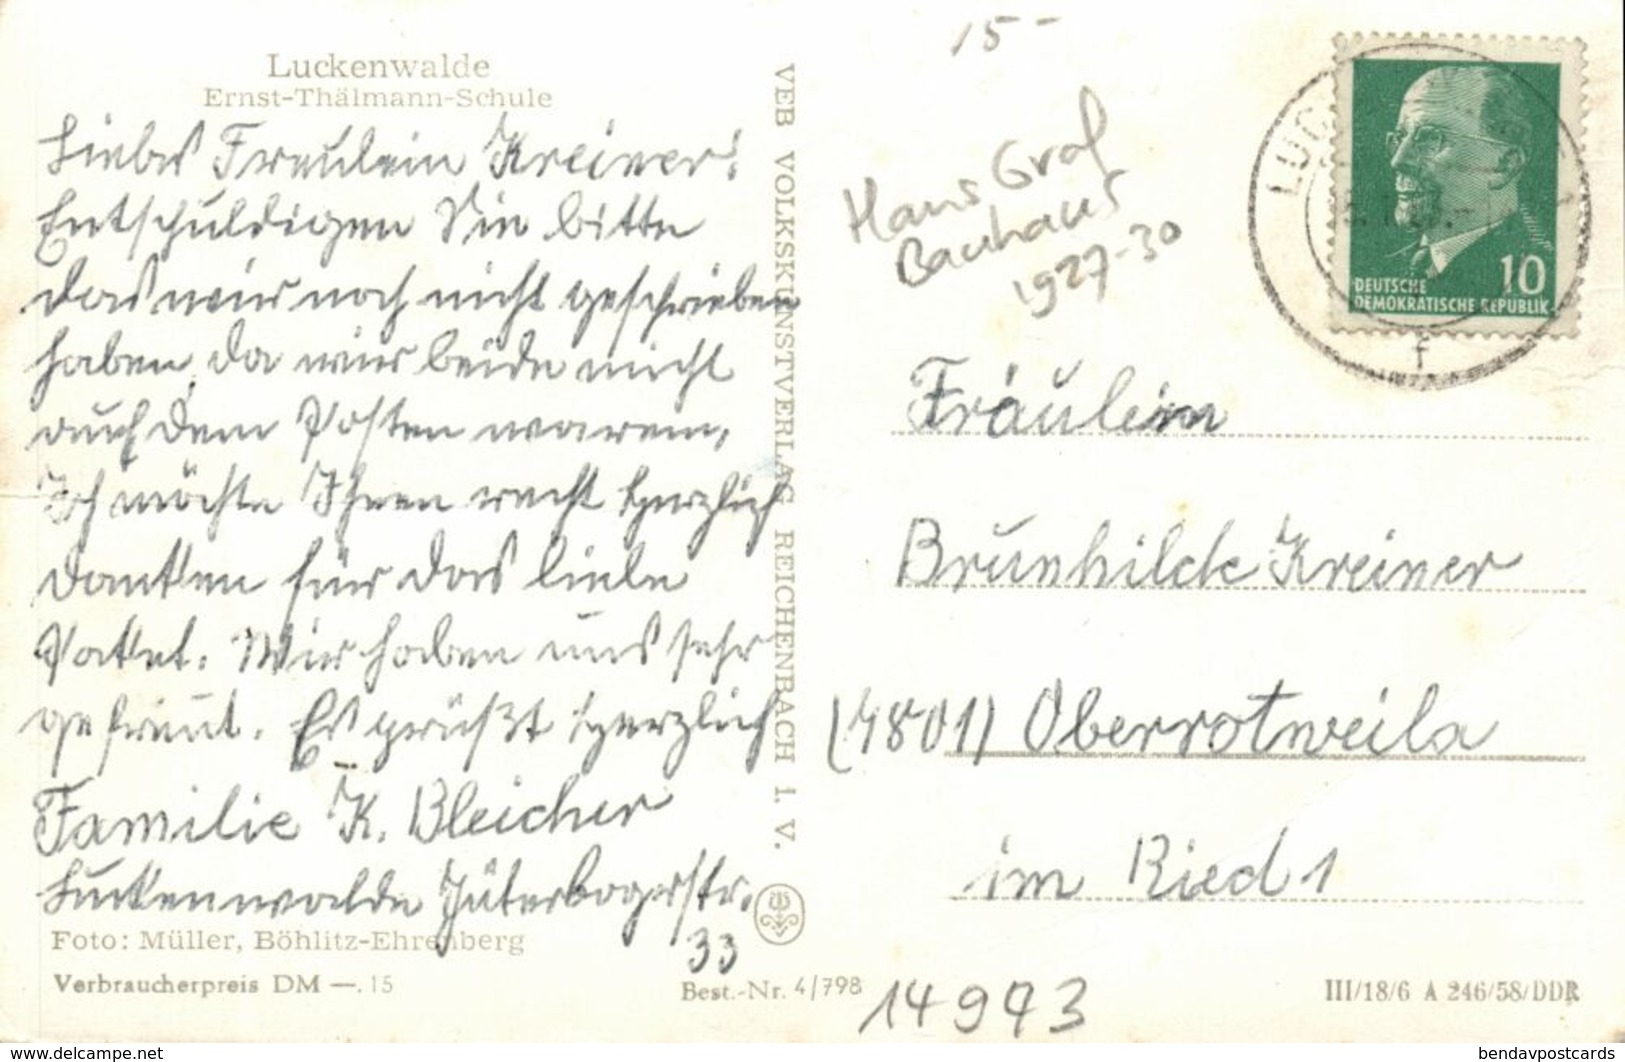 Luckenwalde
Ernst-Thälmann-Schule
Liebes Freulein Kreiner!
Entschuldigen Sie bitte
das wir noch nicht geschrieben
haben, da wir beide nicht
auf dem Posten waren,
Ich möchte Ihnen recht herzlich
danken für das liebe
Paket. Wir haben uns sehr
gefreut. Es grüßt herzlich
Familie K. Bleicher
Luckenwalde Jüterbogerstr.
33
Foto: Müller, Böhlitz-Ehrenberg
Verbraucherpreis DM —.15
Best.-Nr. 4/798
VEB VOLKSKUNSTVERLAG REICHENBACH I. V.
15-
Hans Graf
Bauhaus
1927-30
DEUTSCHE
DEMOKRATISCHE REPUBLIK
10
f
Fräulein
Brunhilde Kreiner
(7801) Oberrotweila
im Ried 1
14993
III/18/6 A 246/58/DDR
www.delcampe.net
bendavpostcards